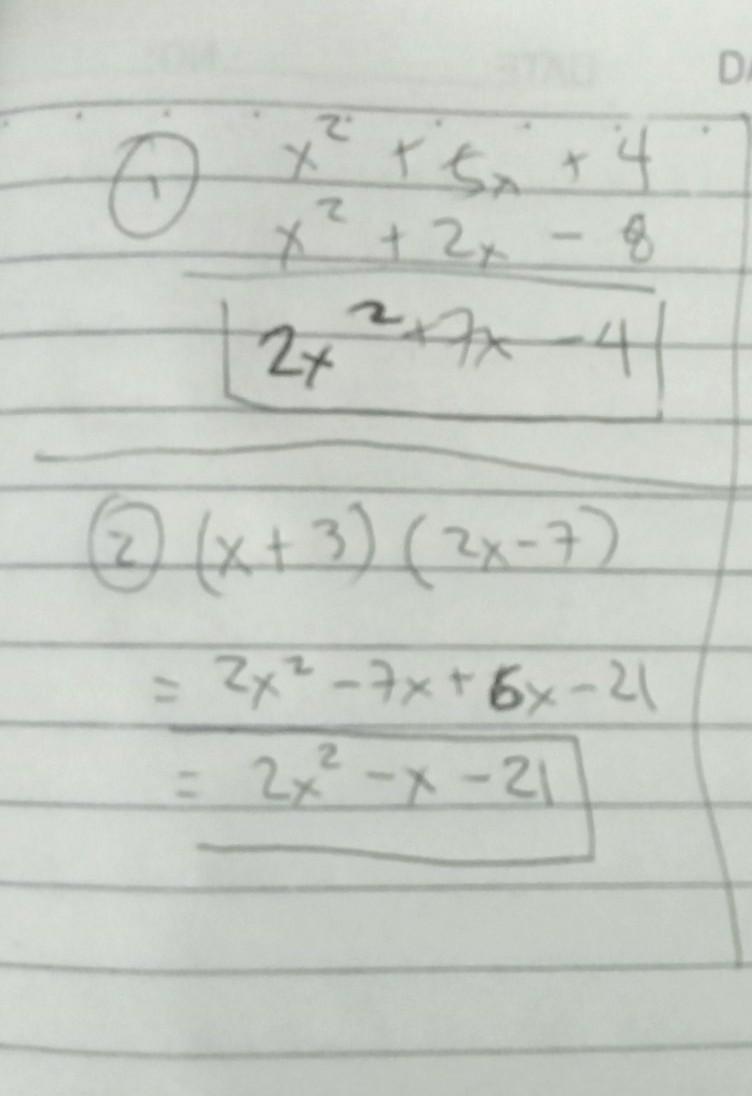 DA
① x² + 5x + 4
x² + 2x - 8
2x² + 7x - 4
② (x + 3) (2x - 7)
= 2x² - 7x + 6x - 21
= 2x² - x - 21